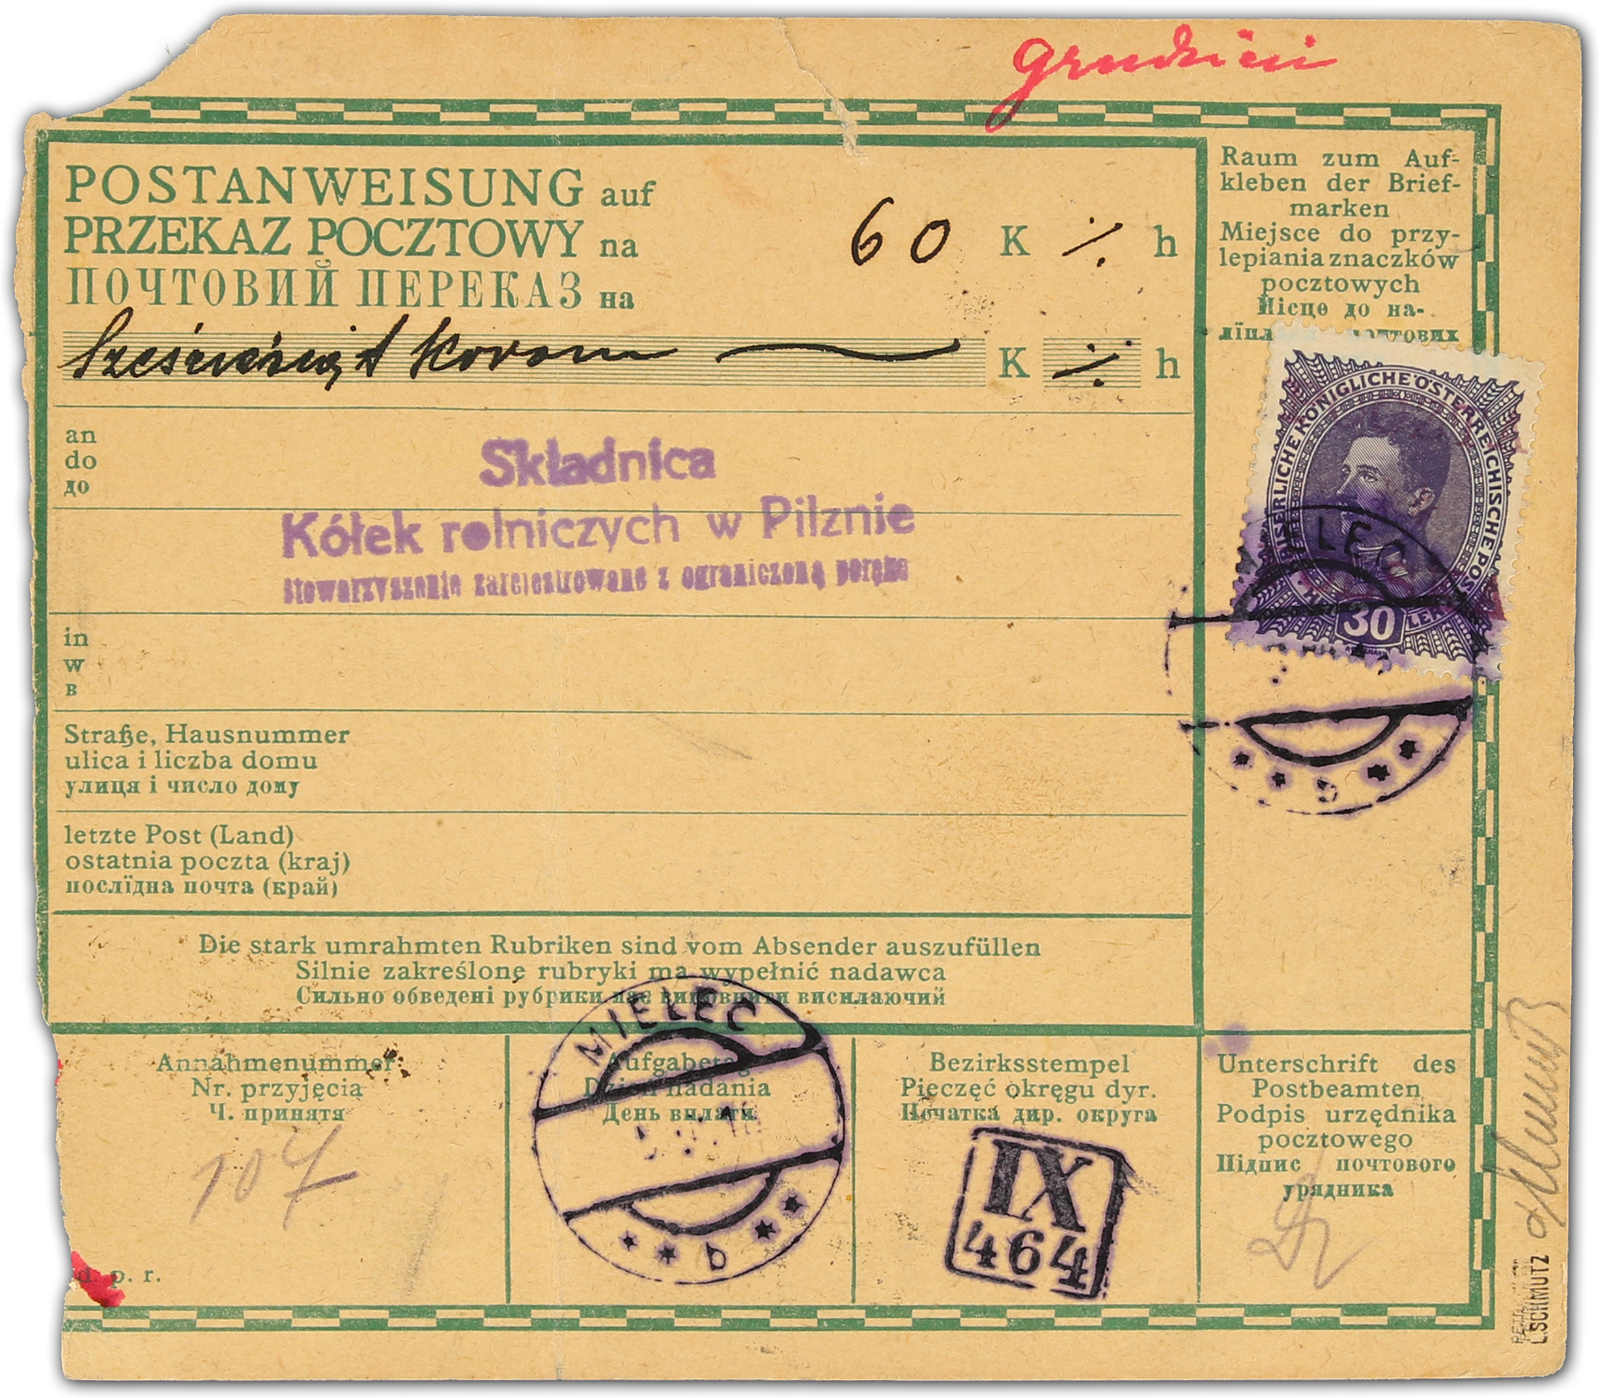 grudzień
POSTANWEISUNG auf
PRZEKAZ POCZTOWY na
ПОЧТОВИЙ ПЕРЕКАЗ на
60 K ·/. h
Sześćdziesiąt Koron K ·/. h
Raum zum Auf-
kleben der Brief-
marken
Miejsce do przy-
lepiania znaczków
pocztowych
Місце до на-
KAISERLICHE KÖNIGLICHE ÖSTERREICHISCHE POST
30
MIELEC
an
do
до
Składnica
Kółek rolniczych w Pilznie
Stowarzyszenie zarejestrowane z ograniczoną poręką
in
w
в
Straße, Hausnummer
ulica i liczba domu
улиця і число дому
letzte Post (Land)
ostatnia poczta (kraj)
послїдна почта (край)
Die stark umrahmten Rubriken sind vom Absender auszufüllen
Silnie zakreślonę rubryki ma wypełnić nadawca
Сильно обведені рубрики має виповнити висилаючий
Annahmenummer
Nr. przyjęcia
Ч. принятя
107
d. p. r.
Aufgabetag
Dzień nadania
День
MIELEC
b
Bezirksstempel
Pięczęć okręgu dyr.
Печатка дир. округа
IX
464
Unterschrift des
Postbeamten
Podpis urzędnika
pocztowego
Підпис почтового
урядника
L.SCHMUTZ